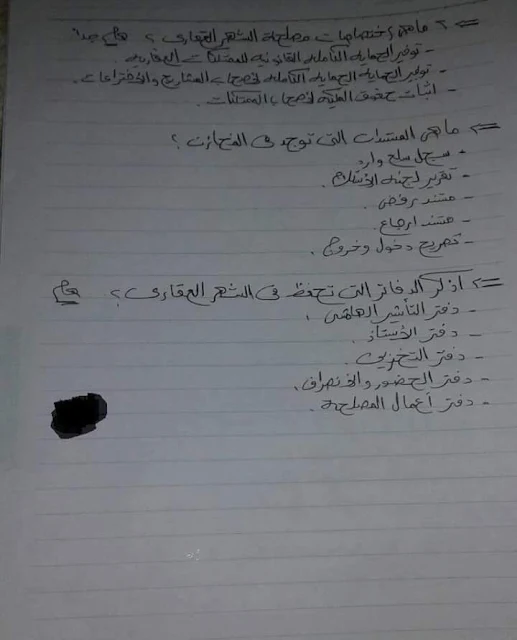 ما هي إختصاصات مصلحة الشهر العقارى ؟ هام جداً
- توفير الحمايه الكامله القانونيه للممتلكات العقاريه.
- توفير الحمايه الكامله لأصحاب المشاريع والأختراعات.
- اثبات حقوق الملكيه لأصحاب الممتلكات.
ما هى المستندات التى توجد فى المخازن ؟
- سجل سلع وارد
- تقرير لجنه الأستلام.
- مستند رفض.
- مستند ارجاع.
- تصريح دخول وخروج.
اذكر الدفاتر التى تحفظ فى الشهر العقارى ؟ هام
- دفتر التأشير الهامشى.
- دفتر الأستاذ.
- دفتر التخزين.
- دفتر الحضور والأنصراف.
- دفتر أعمال المصلحة.